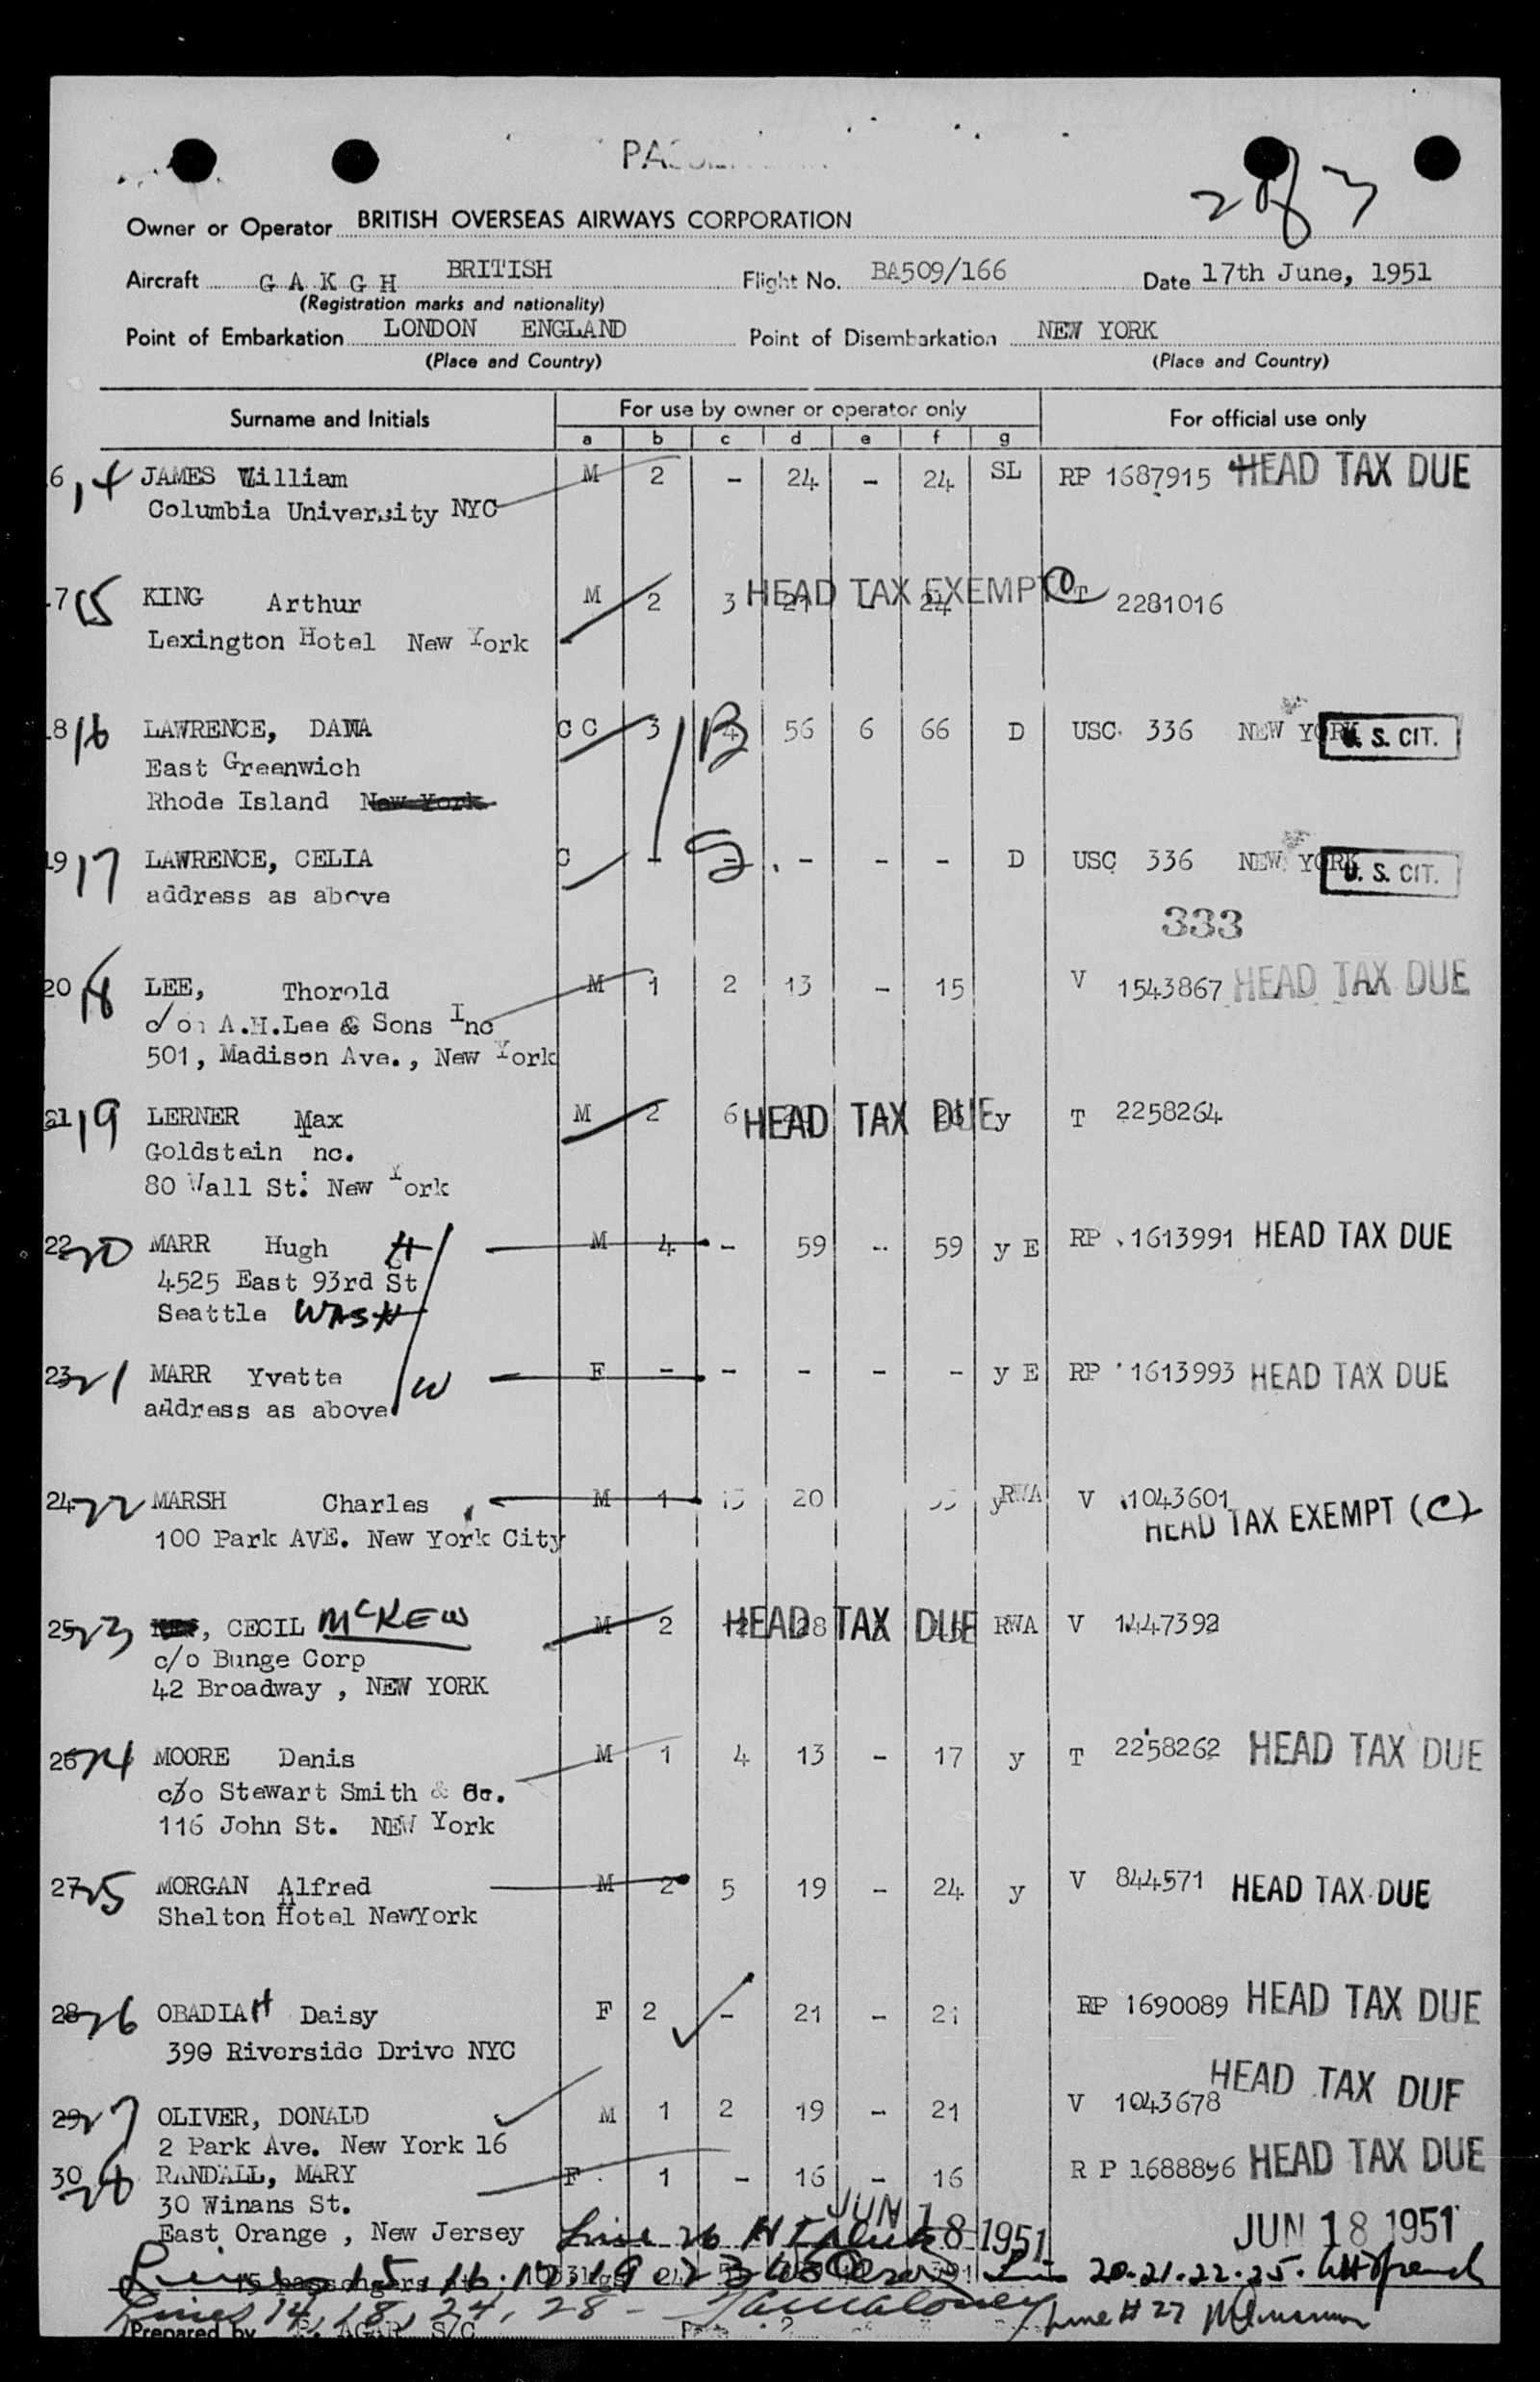 2 of 3
Owner or Operator BRITISH OVERSEAS AIRWAYS CORPORATION
Aircraft G A K G H BRITISH Flight No. BA509/166 Date 17th June, 1951
(Registration marks and nationality)
Point of Embarkation LONDON ENGLAND Point of Disembarkation NEW YORK
(Place and Country) (Place and Country)
Surname and Initials For use by owner or operator only For official use only
a b c d e f g
6 14 JAMES William M 2 - 24 - 24 SL RP 1687915 HEAD TAX DUE
Columbia University NYC
7 15 KING Arthur M 2 3 21 - 24 HEAD TAX EXEMPT C T 2281016
Lexington Hotel New York
18 16 LAWRENCE, DANA C C 3 4 B 56 6 66 D USC 336 NEW YORK U. S. CIT.
East Greenwich
Rhode Island New York
19 17 LAWRENCE, CELIA C - - - - - D USC 336 NEW YORK U. S. CIT.
address as above
333
20 18 LEE, Thorold M 1 2 13 - 15 V 1543867 HEAD TAX DUE
c/o A.H.Lee & Sons Inc
501, Madison Ave., New York
21 19 LERNER Max M 2 6 HEAD TAX DUE y T 2258264
Goldstein nc.
80 Wall St. New York
22 20 MARR Hugh H M 4 - 59 - 59 y E RP 1613991 HEAD TAX DUE
4525 East 93rd St
Seattle WASH
23 21 MARR Yvette W F - - - - - y E RP 1613993 HEAD TAX DUE
address as above
24 22 MARSH Charles M 1 20 y RWA V 1043601
100 Park AVE. New York City HEAD TAX EXEMPT (C)
25 23 , CECIL McKEW M 2 HEAD TAX DUE RWA V 1447392
c/o Bunge Corp
42 Broadway , NEW YORK
26 24 MOORE Denis M 1 4 13 - 17 y T 2258262 HEAD TAX DUE
c/o Stewart Smith & Co.
116 John St. NEW York
27 25 MORGAN Alfred M 2 5 19 - 24 y V 844571 HEAD TAX DUE
Shelton Hotel NewYork
28 26 OBADIAH Daisy F 2 - 21 - 21 RP 1690089 HEAD TAX DUE
390 Riverside Drive NYC
29 27 OLIVER, DONALD M 1 2 19 - 21 V 1043678 HEAD TAX DUE
2 Park Ave. New York 16
30 28 RANDALL, MARY F 1 - 16 - 16 R P 1688896 HEAD TAX DUE
30 Winans St.
East Orange , New Jersey Line 26 JUN 18 1951 JUN 18 1951
Lines 15, 16, 17, 19 20.21.22.25.
Lines 14, 18, 24, 28 - Line # 27
Prepared by P. AGAR S/C